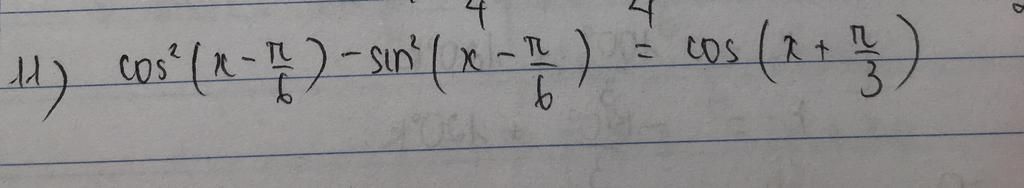 11) cos²(x - π/6) - sin²(x - π/6) = cos(x + π/3)